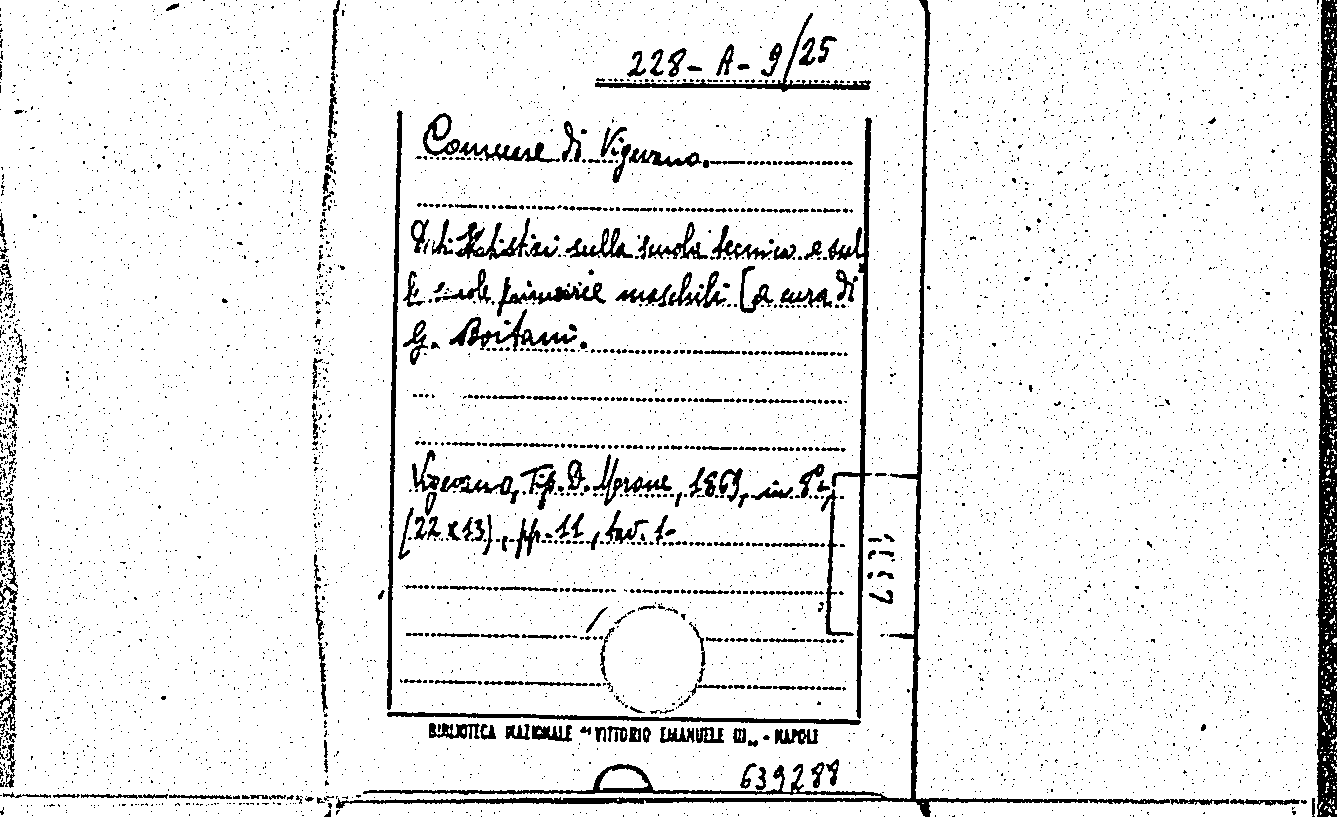 228 - A - 9/25
Comune di Vigevano.
Dati statistici sulla scuola tecnica e sul
le scuole primarie maschili [a cura di
G. Boitani.
Vigevano, Tip. D. Morone, 1869, in 8º,
(22 x 13), pp. 11, tav. 1-
BIBLIOTECA NAZIONALE "VITTORIO EMANUELE III" - NAPOLI
639288